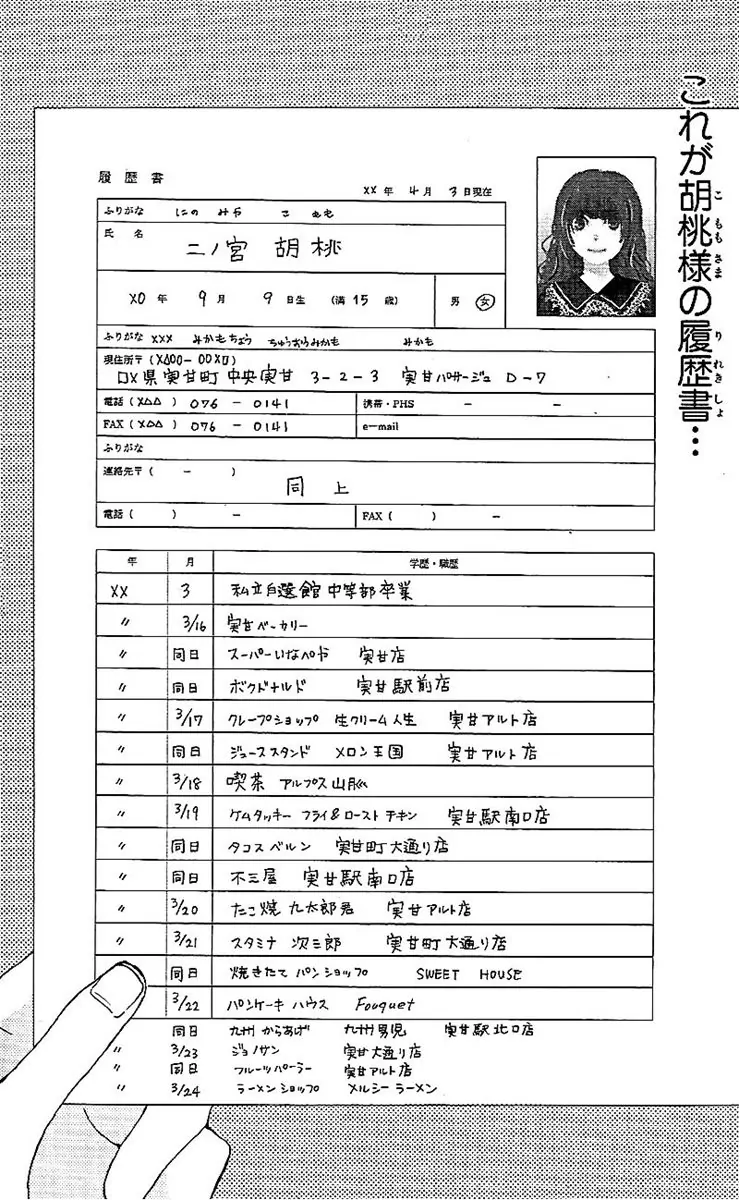 これが胡桃様の履歴書…
こももさま
りれきしょ
履歴書
XX 年 4月 3日現在
ふりがな にの みや こ もも
氏名 二ノ宮 胡桃
X0 年 9月 9日生 (満15歳) 男 女
ふりがな XXX みかもちょう ちゅうおうみかも みかも
現住所〒(XΔ00-00X0)
口X県実甘町中央実甘 3-2-3 実甘パサージュ D-7
電話(XΔΔ) 076 - 0141 携帯・PHS - -
FAX(XΔΔ) 076 - 0141 e-mail
ふりがな
連絡先〒( - )
同 上
電話( ) - FAX( ) -
年 月 学歴・職歴
XX 3 私立自選館中等部卒業
〃 3/16 実甘ベーカリー
〃 同日 スーパーいなべや 実甘店
〃 同日 ボクドナルド 実甘駅前店
〃 3/17 クレープショップ 生クリーム人生 実甘アルト店
〃 同日 ジューススタンド メロン王国 実甘アルト店
〃 3/18 喫茶 アルプス山脈
〃 3/19 ケムタッキー フライ&ロースト チキン 実甘駅南口店
〃 同日 タコスベルン 実甘町大通り店
〃 同日 不三屋 実甘駅南口店
〃 3/20 たこ焼 九太郎君 実甘アルト店
〃 3/21 スタミナ 次三郎 実甘町大通り店
同日 焼きたて パンショップ SWEET HOUSE
3/22 パンケーキ ハウス Fouquet
同日 九州 からあげ 九州男児 実甘駅北口店
〃 3/23 ジョノサン 実甘大通り店
〃 同日 フルーツパーラー 実甘アルト店
〃 3/24 ラーメンショップ メルシーラーメン